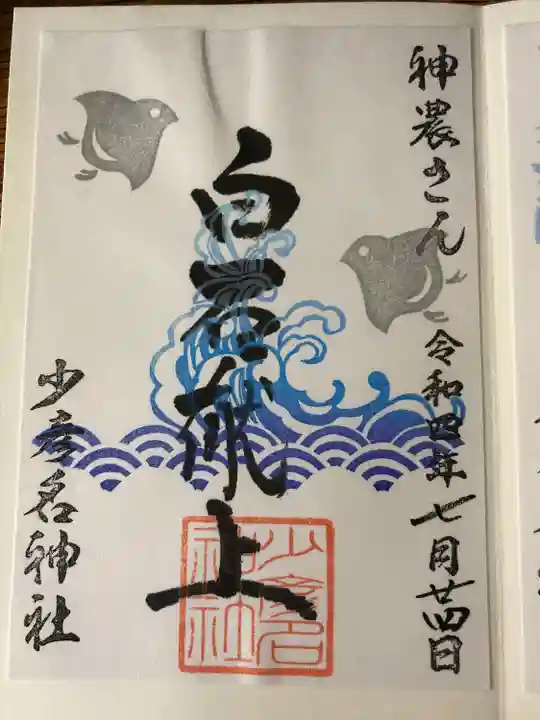 神農さん 令和四年七月廿四日
上
少彦名神社
少彦名
神社